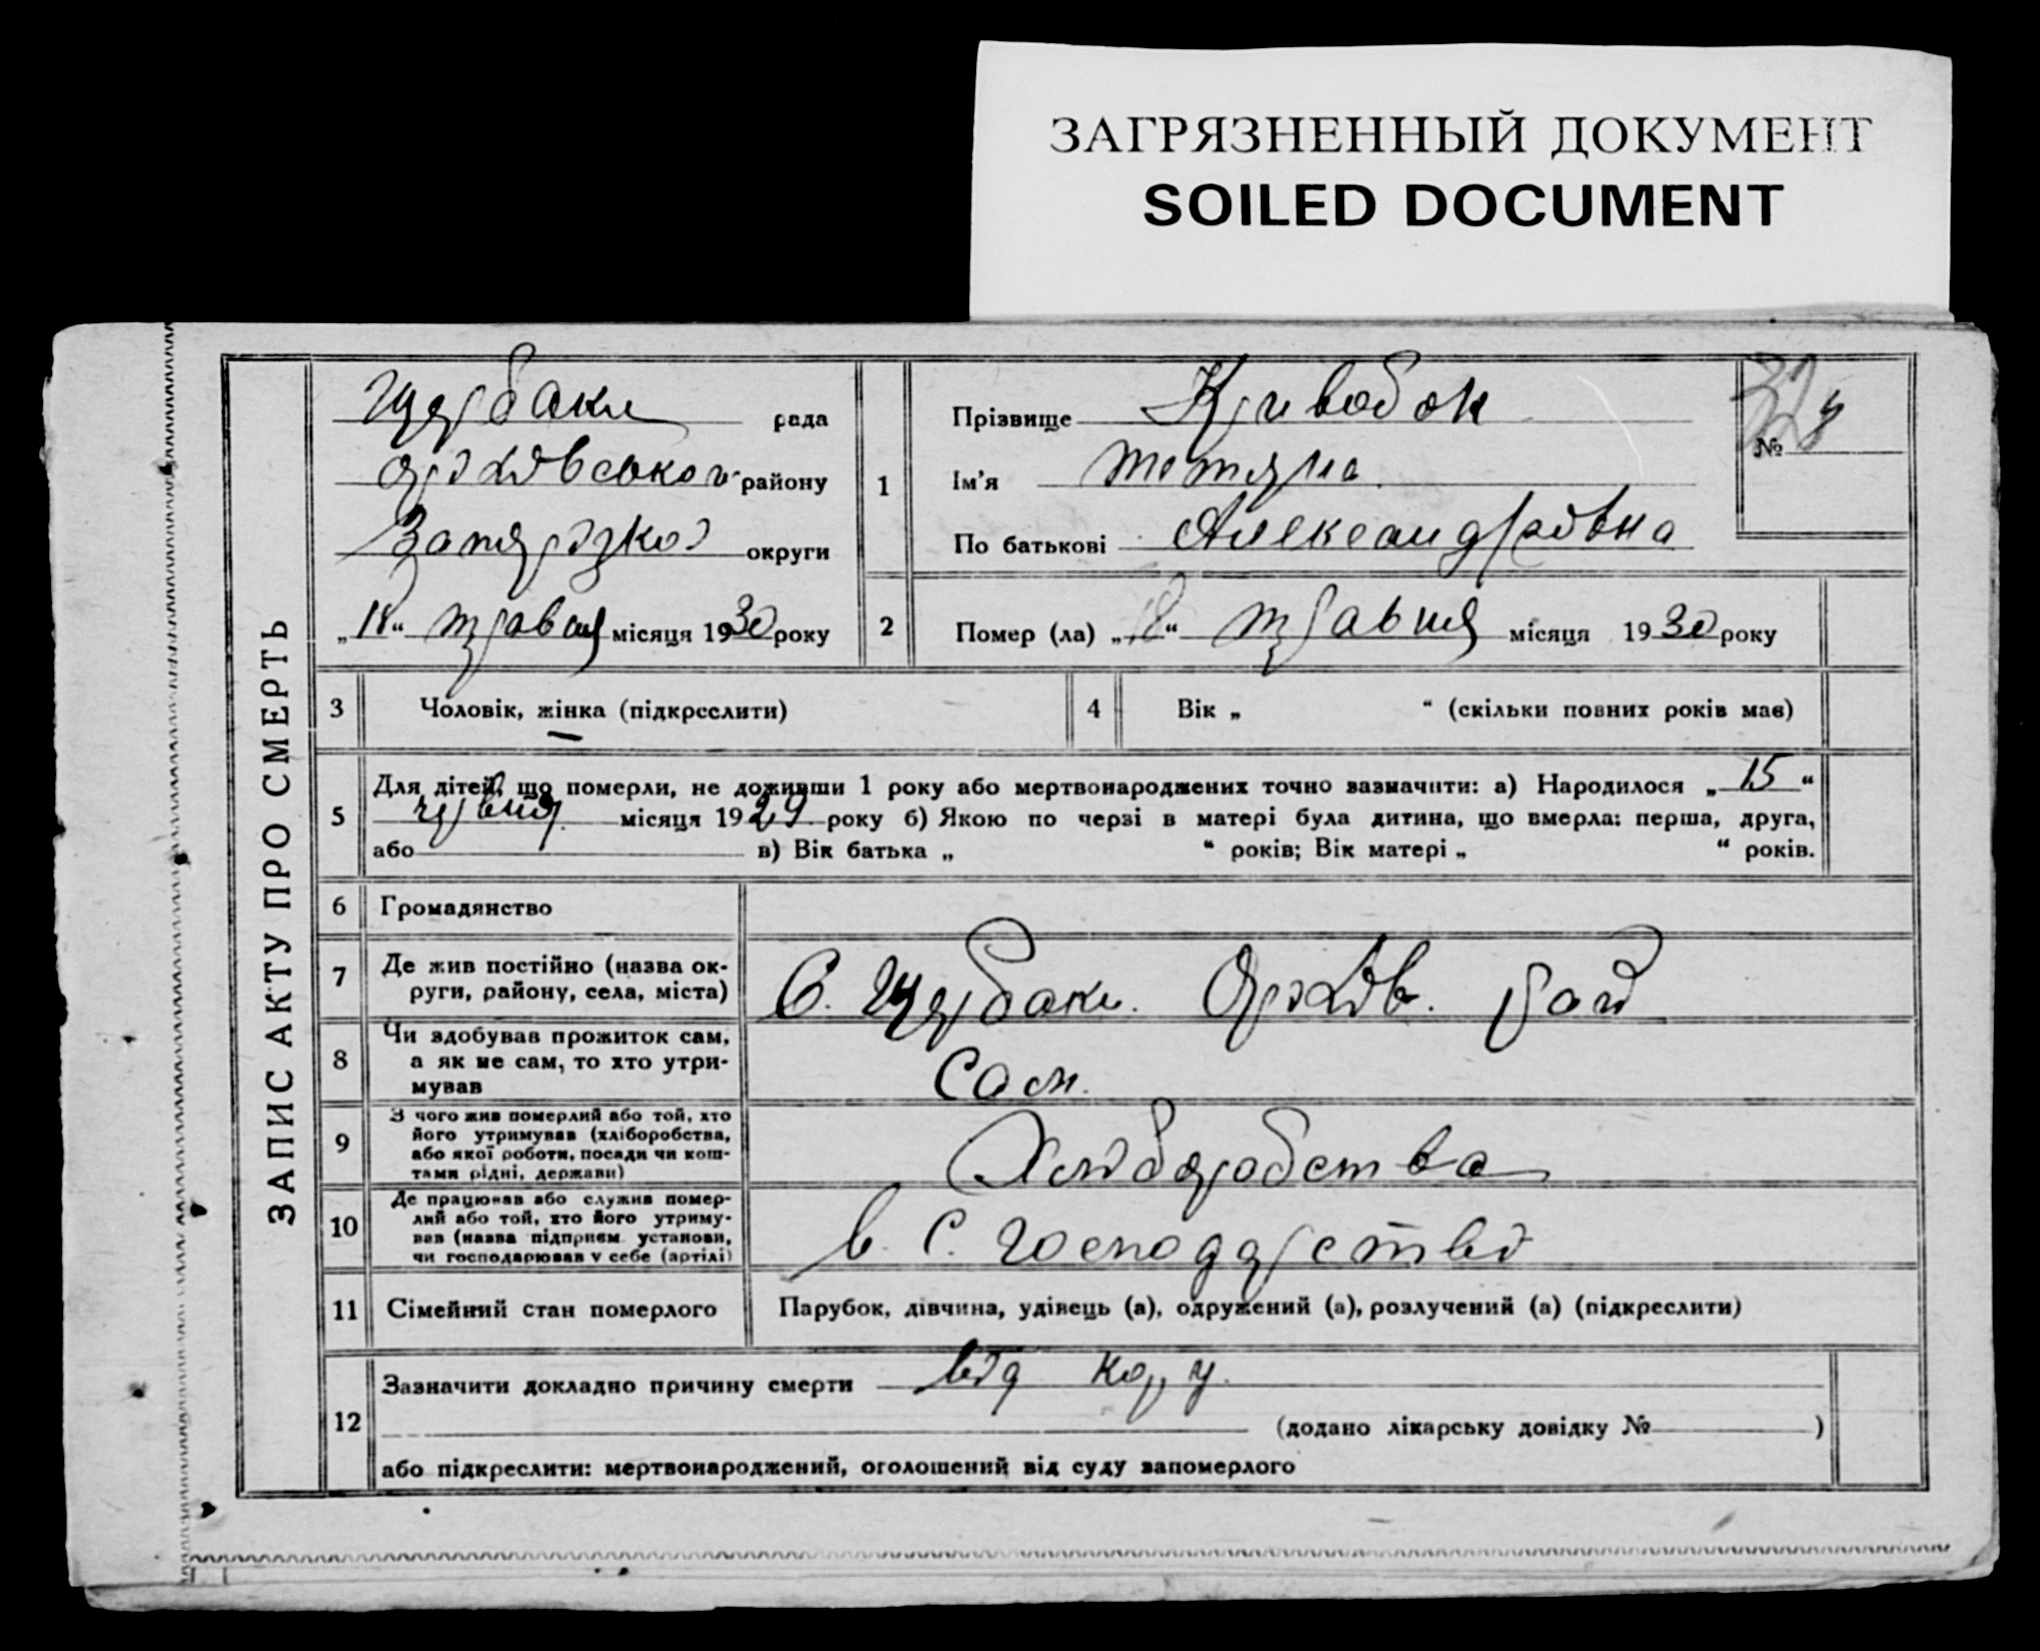 ЗАГРЯЗНЕННЫЙ ДОКУМЕНТ
SOILED DOCUMENT
ЗАПИС АКТУ ПРО СМЕРТЬ
Щербаки рада
району
округи
„18“ травня місяця 1930 року
1
Прізвище Кривобок
Ім'я Тетяна
По батькові Александровна
№
2
Помер (ла) „18“ травня місяця 1930 року
3 Чоловік, жінка (підкреслити)
4 Вік „ “ (скільки повних років має)
5
Для дітей, що померли, не доживши 1 року або мертвонароджених точно зазначити: а) Народилося „15“
червня місяця 1929 року б) Якою по черзі в матері була дитина, що вмерла: перша, друга,
або в) Вік батька „ “ років; Вік матері „ “ років.
6 Громадянство
7
Де жив постійно (назва ок-
руги, району, села, міста)
С. Щербаки. Оріхів. рай
8
Чи здобував прожиток сам,
а як не сам, то хто утри-
мував
Сам.
9
З чого жив померлий або той, хто
його утримував (хліборобства,
або якої роботи, посади чи кош-
тами рідні, держави)
Хліборобства
10
Де працював або служив помер-
лий або той, хто його утриму-
вав (назва підприєм. установи,
чи господарював у себе (артілі)
в. С. Господарстві
11 Сімейний стан померлого
Парубок, дівчина, удівець (а), одружений (а), розлучений (а) (підкреслити)
12
Зазначити докладно причину смерти від кору.
(додано лікарську довідку № )
або підкреслити: мертвонароджений, оголошений від суду запомерлого